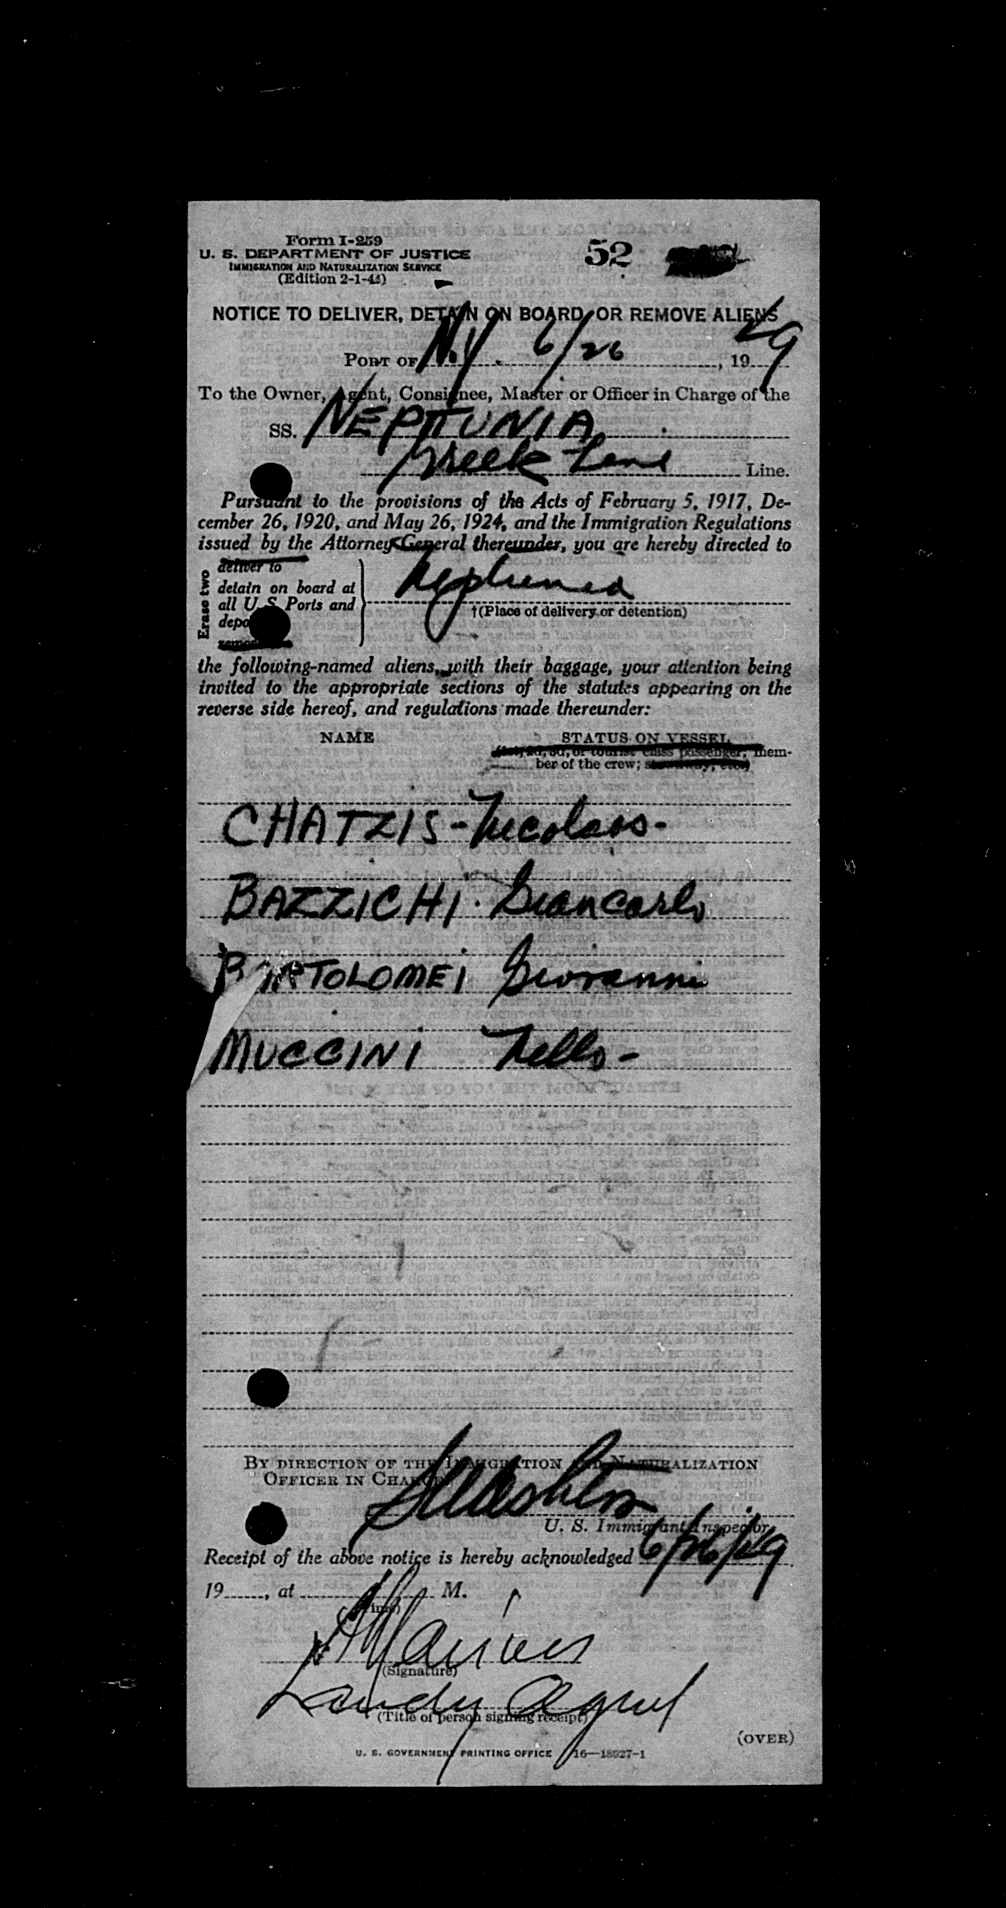 Form I-259
U. S. DEPARTMENT OF JUSTICE
IMMIGRATION AND NATURALIZATION SERVICE
(Edition 2-1-44)
52
NOTICE TO DELIVER, DETAIN ON BOARD, OR REMOVE ALIENS
PORT OF N.Y. 6/26, 1949
To the Owner, Agent, Consignee, Master or Officer in Charge of the
SS. NEPTUNIA
Greek Line Line.
Pursuant to the provisions of the Acts of February 5, 1917, De-
cember 26, 1920, and May 26, 1924, and the Immigration Regulations
issued by the Attorney General thereunder, you are hereby directed to
Erase two
deliver to
detain on board at
all U. S. Ports and
depo
Neptunia
†(Place of delivery or detention)
the following-named aliens, with their baggage, your attention being
invited to the appropriate sections of the statutes appearing on the
reverse side hereof, and regulations made thereunder:
NAME STATUS ON VESSEL
(1st, 2d, 3d, or tourist class passenger, mem-
ber of the crew; stowaway, etc.)
CHATZIS - Nicolaos -
BAZZICHI Giancarlo
BARTOLOMEI Giovanni
MUCCINI Nello -
BY DIRECTION OF THE IMMIGRATION AND NATURALIZATION
OFFICER IN CHARGE
U. S. Immigrant Inspector.
Receipt of the above notice is hereby acknowledged 6/26/49
19......, at .................... M.
(Time)
(Signature)
(Title of person signing receipt)
(OVER)
U. S. GOVERNMENT PRINTING OFFICE 16—18927-1